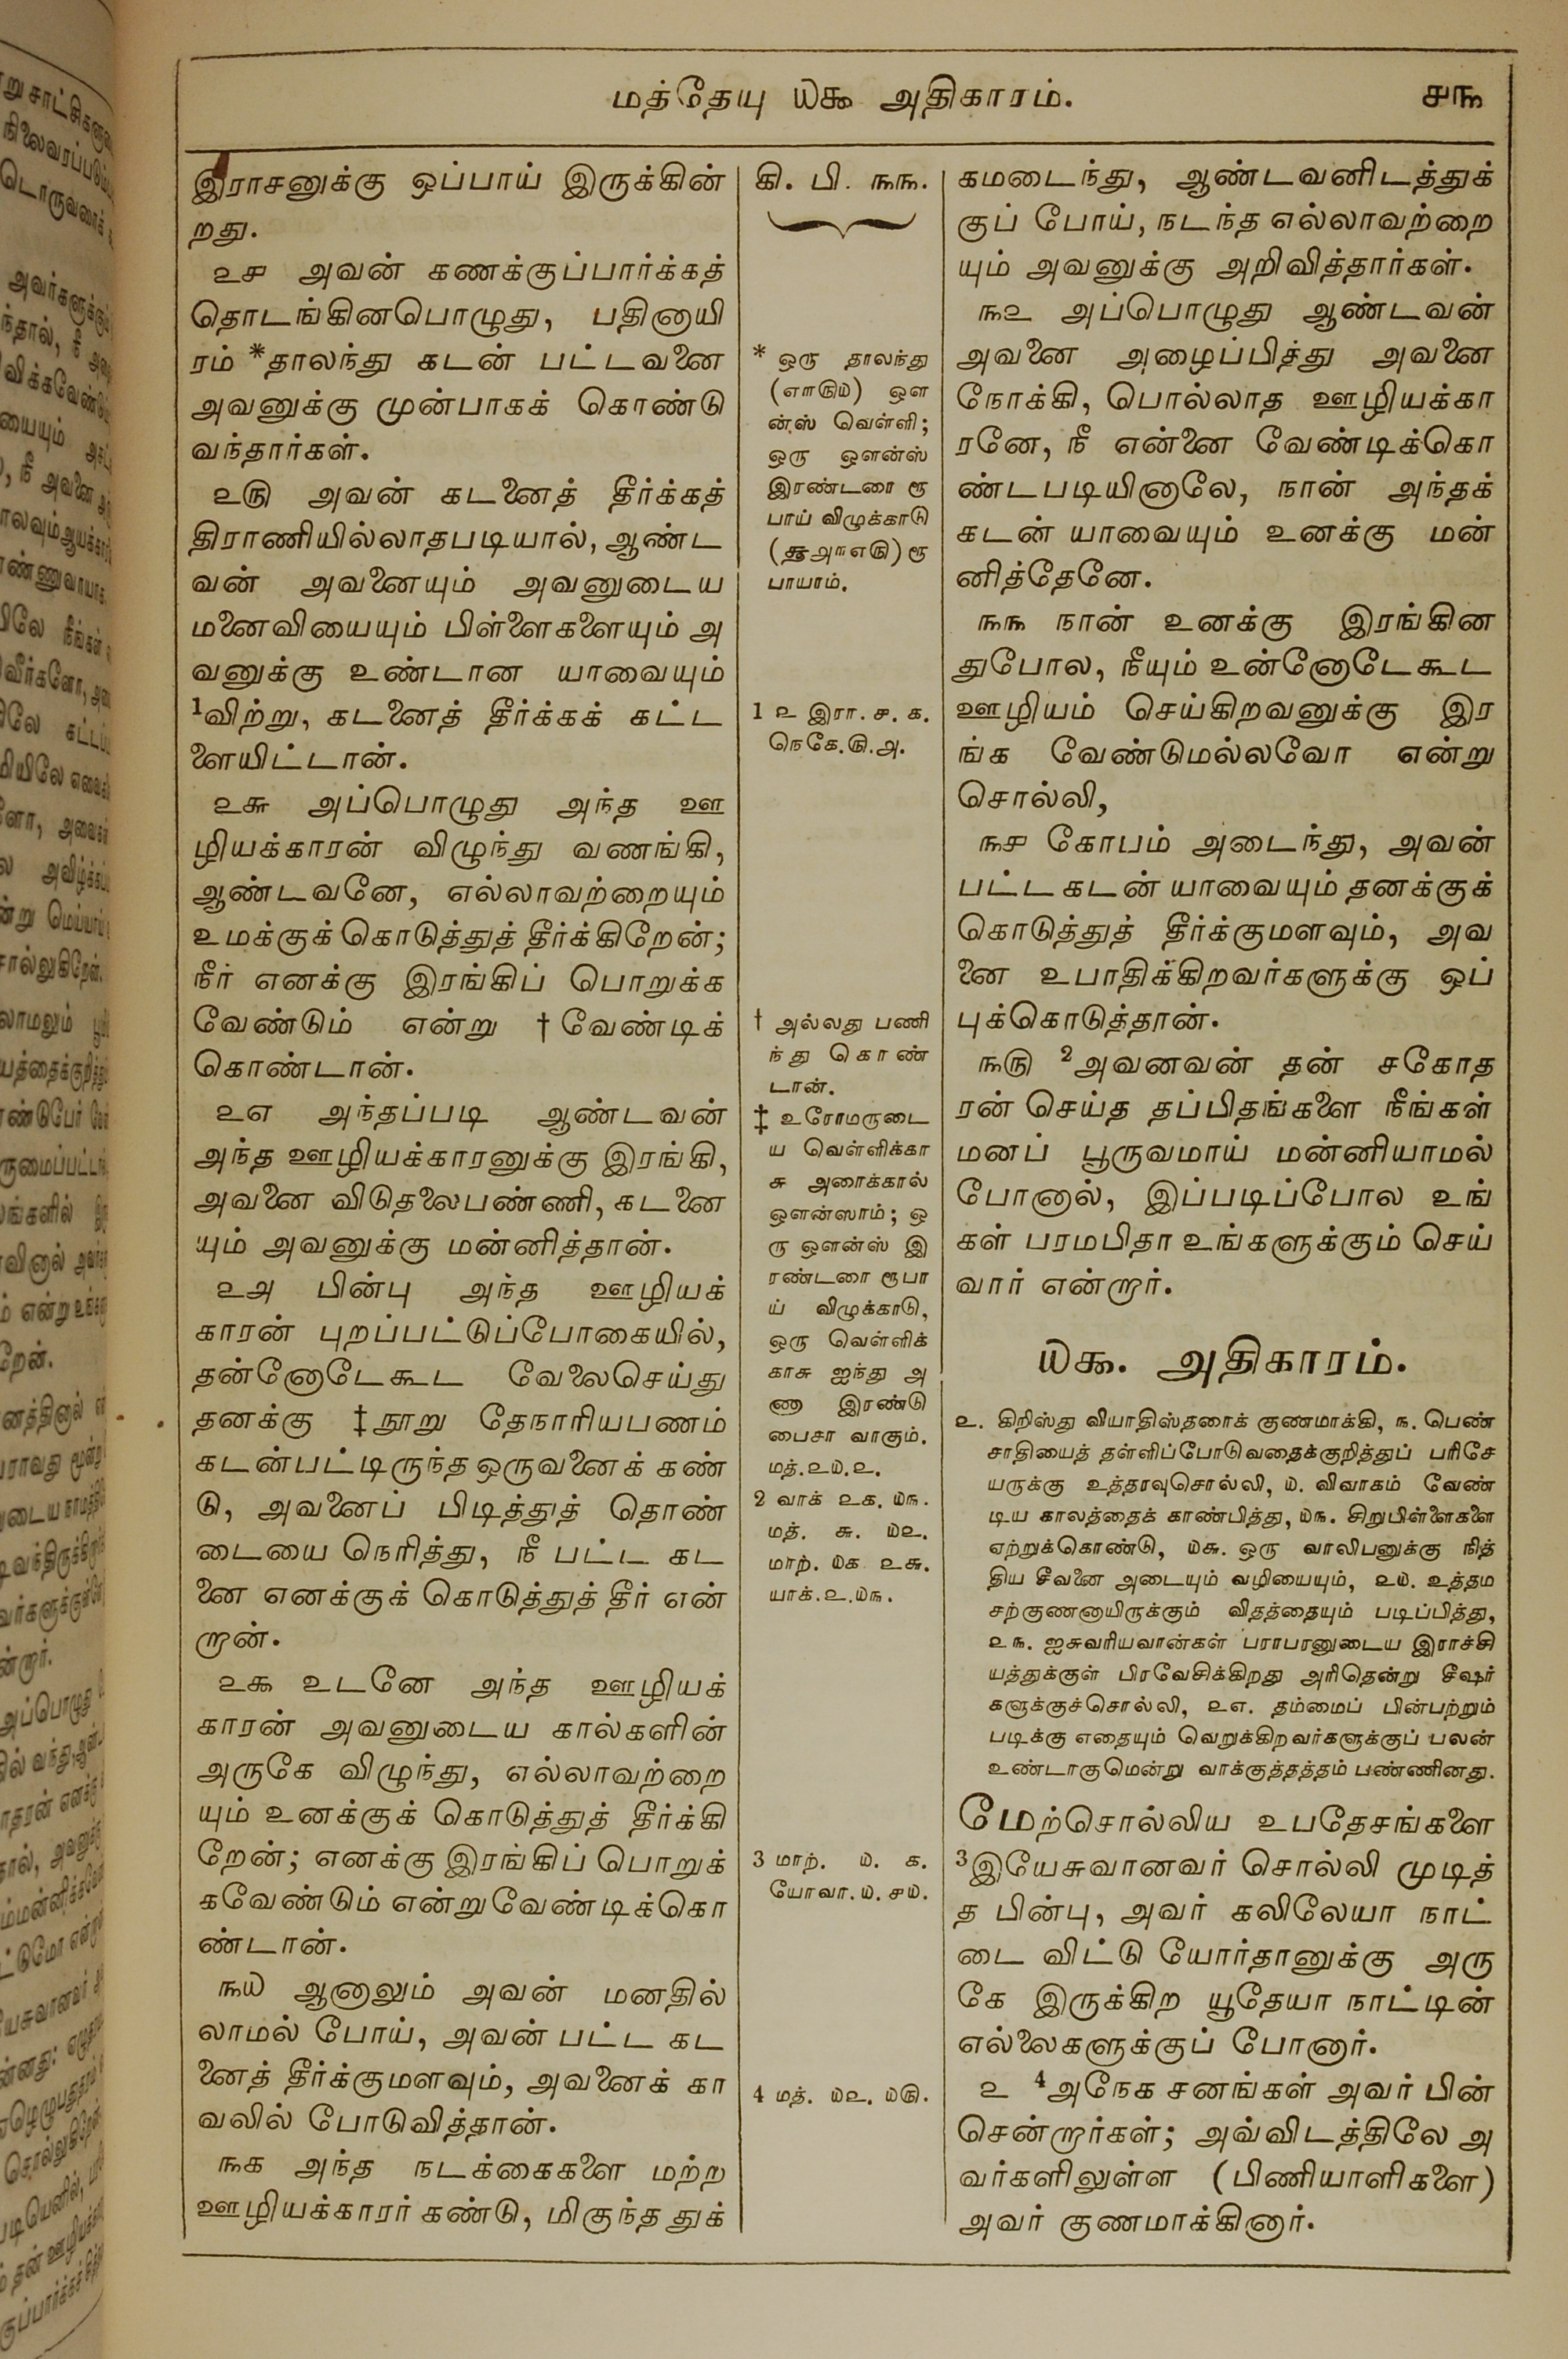 மத்தேயு ௰௯ அதிகாரம்.
௪௩
இராசனுக்கு ஒப்பாய் இருக்கின்
றது.
௨௪ அவன் கணக்குப்பார்க்கத்
தொடங்கினபொழுது, பதினாயி
ரம் *தாலந்து கடன் பட்டவனை
அவனுக்கு முன்பாகக் கொண்டு
வந்தார்கள்.
௨௫ அவன் கடனைத் தீர்க்கத்
திராணியில்லாதபடியால், ஆண்ட
வன் அவனையும் அவனுடைய
மனைவியையும் பிள்ளைகளையும் அ
வனுக்கு உண்டான யாவையும்
¹விற்று, கடனைத் தீர்க்கக் கட்ட
ளையிட்டான்.
௨௬ அப்பொழுது அந்த ஊ
ழியக்காரன் விழுந்து வணங்கி,
ஆண்டவனே, எல்லாவற்றையும்
உமக்குக் கொடுத்துத் தீர்க்கிறேன்;
நீர் எனக்கு இரங்கிப் பொறுக்க
வேண்டும் என்று †வேண்டிக்
கொண்டான்.
௨௭ அந்தப்படி ஆண்டவன்
அந்த ஊழியக்காரனுக்கு இரங்கி,
அவனை விடுதலைபண்ணி, கடனை
யும் அவனுக்கு மன்னித்தான்.
௨௮ பின்பு அந்த ஊழியக்
காரன் புறப்பட்டுப்போகையில்,
தன்னோடேகூட வேலைசெய்து
தனக்கு ‡நூறு தேநாரியபணம்
கடன்பட்டிருந்த ஒருவனைக் கண்
டு, அவனைப் பிடித்துத் தொண்
டையை நெரித்து, நீ பட்ட கட
னை எனக்குக் கொடுத்துத் தீர் என்
றான்.
௨௯ உடனே அந்த ஊழியக்
காரன் அவனுடைய கால்களின்
அருகே விழுந்து, எல்லாவற்றை
யும் உனக்குக் கொடுத்துத் தீர்க்கி
றேன்; எனக்கு இரங்கிப் பொறுக்
கவேண்டும் என்று வேண்டிக்கொ
ண்டான்.
௩௰ ஆனாலும் அவன் மனதில்
லாமல் போய், அவன் பட்ட கட
னைத் தீர்க்குமளவும், அவனைக் கா
வலில் போடுவித்தான்.
௩௧ அந்த நடக்கைகளை மற்ற
ஊழியக்காரர் கண்டு, மிகுந்த துக்
கி. பி. ௩௩.
* ஒரு தாலந்து
(௭௱௫௰) ஔ
ன்ஸ் வெள்ளி;
ஒரு ஔன்ஸ்
இரண்டரை ரூ
பாய் விழுக்காடு
(௲௮௱௭௫) ரூ
பாயாம்.
1 ௨ இரா. ௪. ௧.
நெகே.௫.௮.
† அல்லது பணி
ந்து கொண்
டான்.
‡ உரோமருடை
ய வெள்ளிக்கா
சு அரைக்கால்
ஔன்ஸாம்; ஒ
ரு ஔன்ஸ் இ
ரண்டரை ரூபா
ய் விழுக்காடு,
ஒரு வெள்ளிக்
காசு ஐந்து அ
ணா இரண்டு
பைசா வாகும்.
மத்.௨௰.௨.
2 வாக் ௨௧. ௰௩.
மத். ௬. ௰௨.
மாற். ௰௧ ௨௬.
யாக்.௨.௰௩.
3 மாற். ௰. ௧.
யோவா.௰.௪௰.
4 மத். ௰௨. ௰௫.
கமடைந்து, ஆண்டவனிடத்துக்
குப் போய், நடந்த எல்லாவற்றை
யும் அவனுக்கு அறிவித்தார்கள்.
௩௨ அப்பொழுது ஆண்டவன்
அவனை அழைப்பித்து அவனை
நோக்கி, பொல்லாத ஊழியக்கா
ரனே, நீ என்னை வேண்டிக்கொ
ண்டபடியினாலே, நான் அந்தக்
கடன் யாவையும் உனக்கு மன்
னித்தேனே.
௩௩ நான் உனக்கு இரங்கின
துபோல, நீயும் உன்னோடேகூட
ஊழியம் செய்கிறவனுக்கு இர
ங்க வேண்டுமல்லவோ என்று
சொல்லி,
௩௪ கோபம் அடைந்து, அவன்
பட்ட கடன் யாவையும் தனக்குக்
கொடுத்துத் தீர்க்குமளவும், அவ
னை உபாதிக்கிறவர்களுக்கு ஒப்
புக்கொடுத்தான்.
௩௫ ²அவனவன் தன் சகோத
ரன் செய்த தப்பிதங்களை நீங்கள்
மனப் பூருவமாய் மன்னியாமல்
போனால், இப்படிப்போல உங்
கள் பரமபிதா உங்களுக்கும் செய்
வார் என்றார்.
௰௯. அதிகாரம்.
௨. கிறிஸ்து வியாதிஸ்தரைக் குணமாக்கி, ௩. பெண்
சாதியைத் தள்ளிப்போடுவதைக்குறித்துப் பரிசே
யருக்கு உத்தரவுசொல்லி, ௰. விவாகம் வேண்
டிய காலத்தைக் காண்பித்து, ௰௩. சிறுபிள்ளைகளை
ஏற்றுக்கொண்டு, ௰௬. ஒரு வாலிபனுக்கு நித்
திய சீவனை அடையும் வழியையும், ௨௰. உத்தம
சற்குணனாயிருக்கும் விதத்தையும் படிப்பித்து,
௨௩. ஐசுவரியவான்கள் பராபரனுடைய இராச்சி
யத்துக்குள் பிரவேசிக்கிறது அரிதென்று சீஷர்
களுக்குச்சொல்லி, ௨௭. தம்மைப் பின்பற்றும்
படிக்கு எதையும் வெறுக்கிறவர்களுக்குப் பலன்
உண்டாகுமென்று வாக்குத்தத்தம் பண்ணினது.
மேற்சொல்லிய உபதேசங்களை
³இயேசுவானவர் சொல்லி முடித்
த பின்பு, அவர் கலிலேயா நாட்
டை விட்டு யோர்தானுக்கு அரு
கே இருக்கிற யூதேயா நாட்டின்
எல்லைகளுக்குப் போனார்.
௨ ⁴அநேக சனங்கள் அவர் பின்
சென்றார்கள்; அவ்விடத்திலே அ
வர்களிலுள்ள (பிணியாளிகளை)
அவர் குணமாக்கினார்.